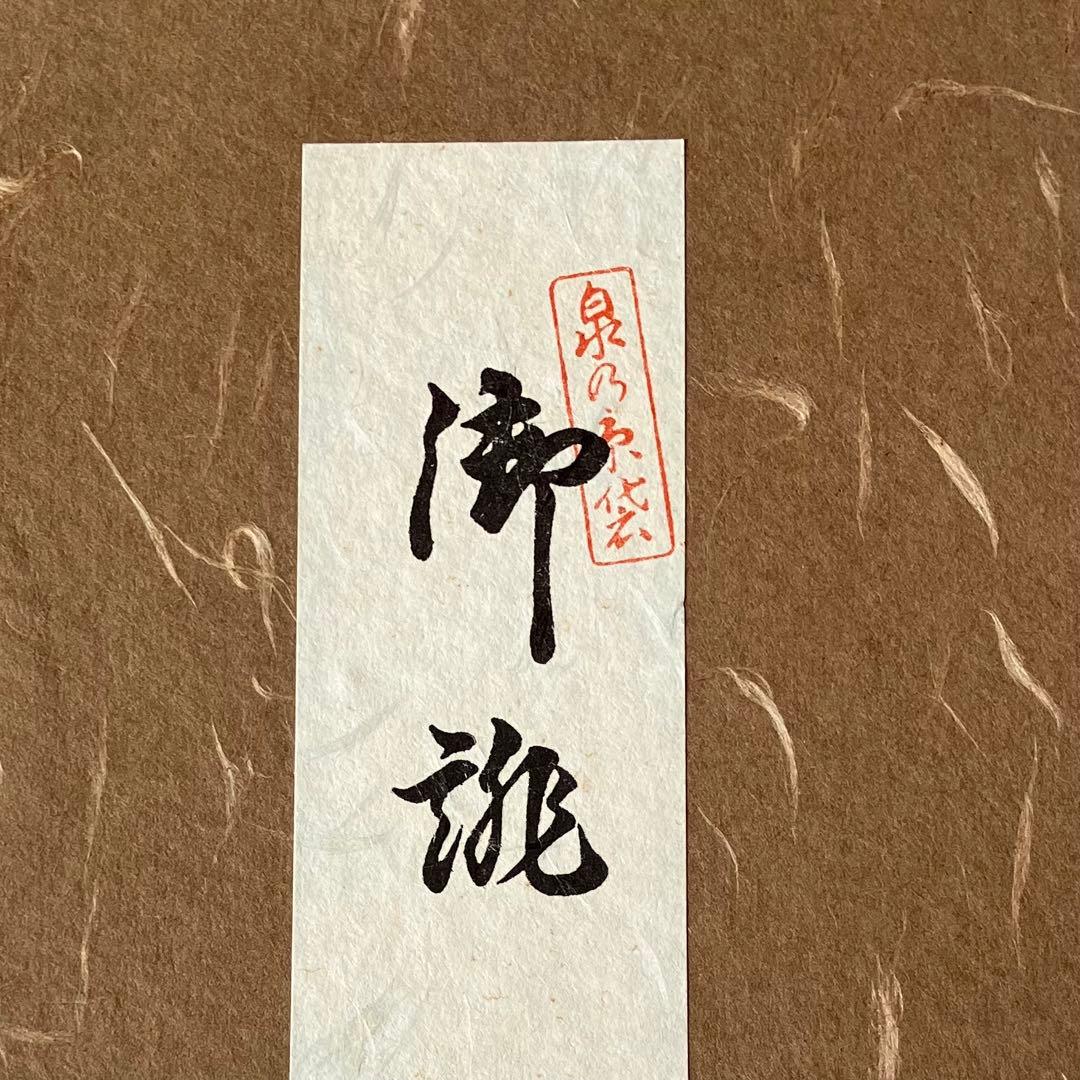 泉乃京袋
御誂